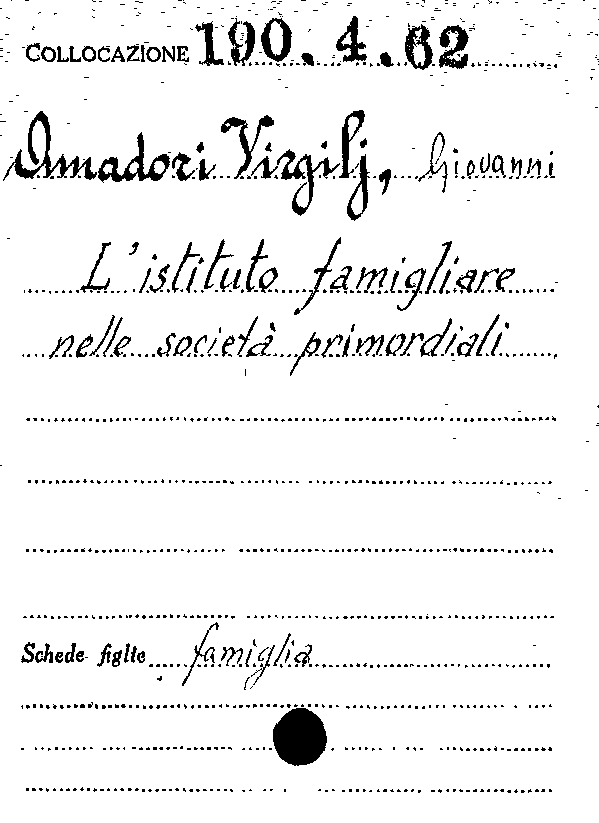 COLLOCAZIONE 190.4.62
Amadori Virgilj, Giovanni
L'istituto famigliare
nelle società primordiali
Schede figlie famiglia